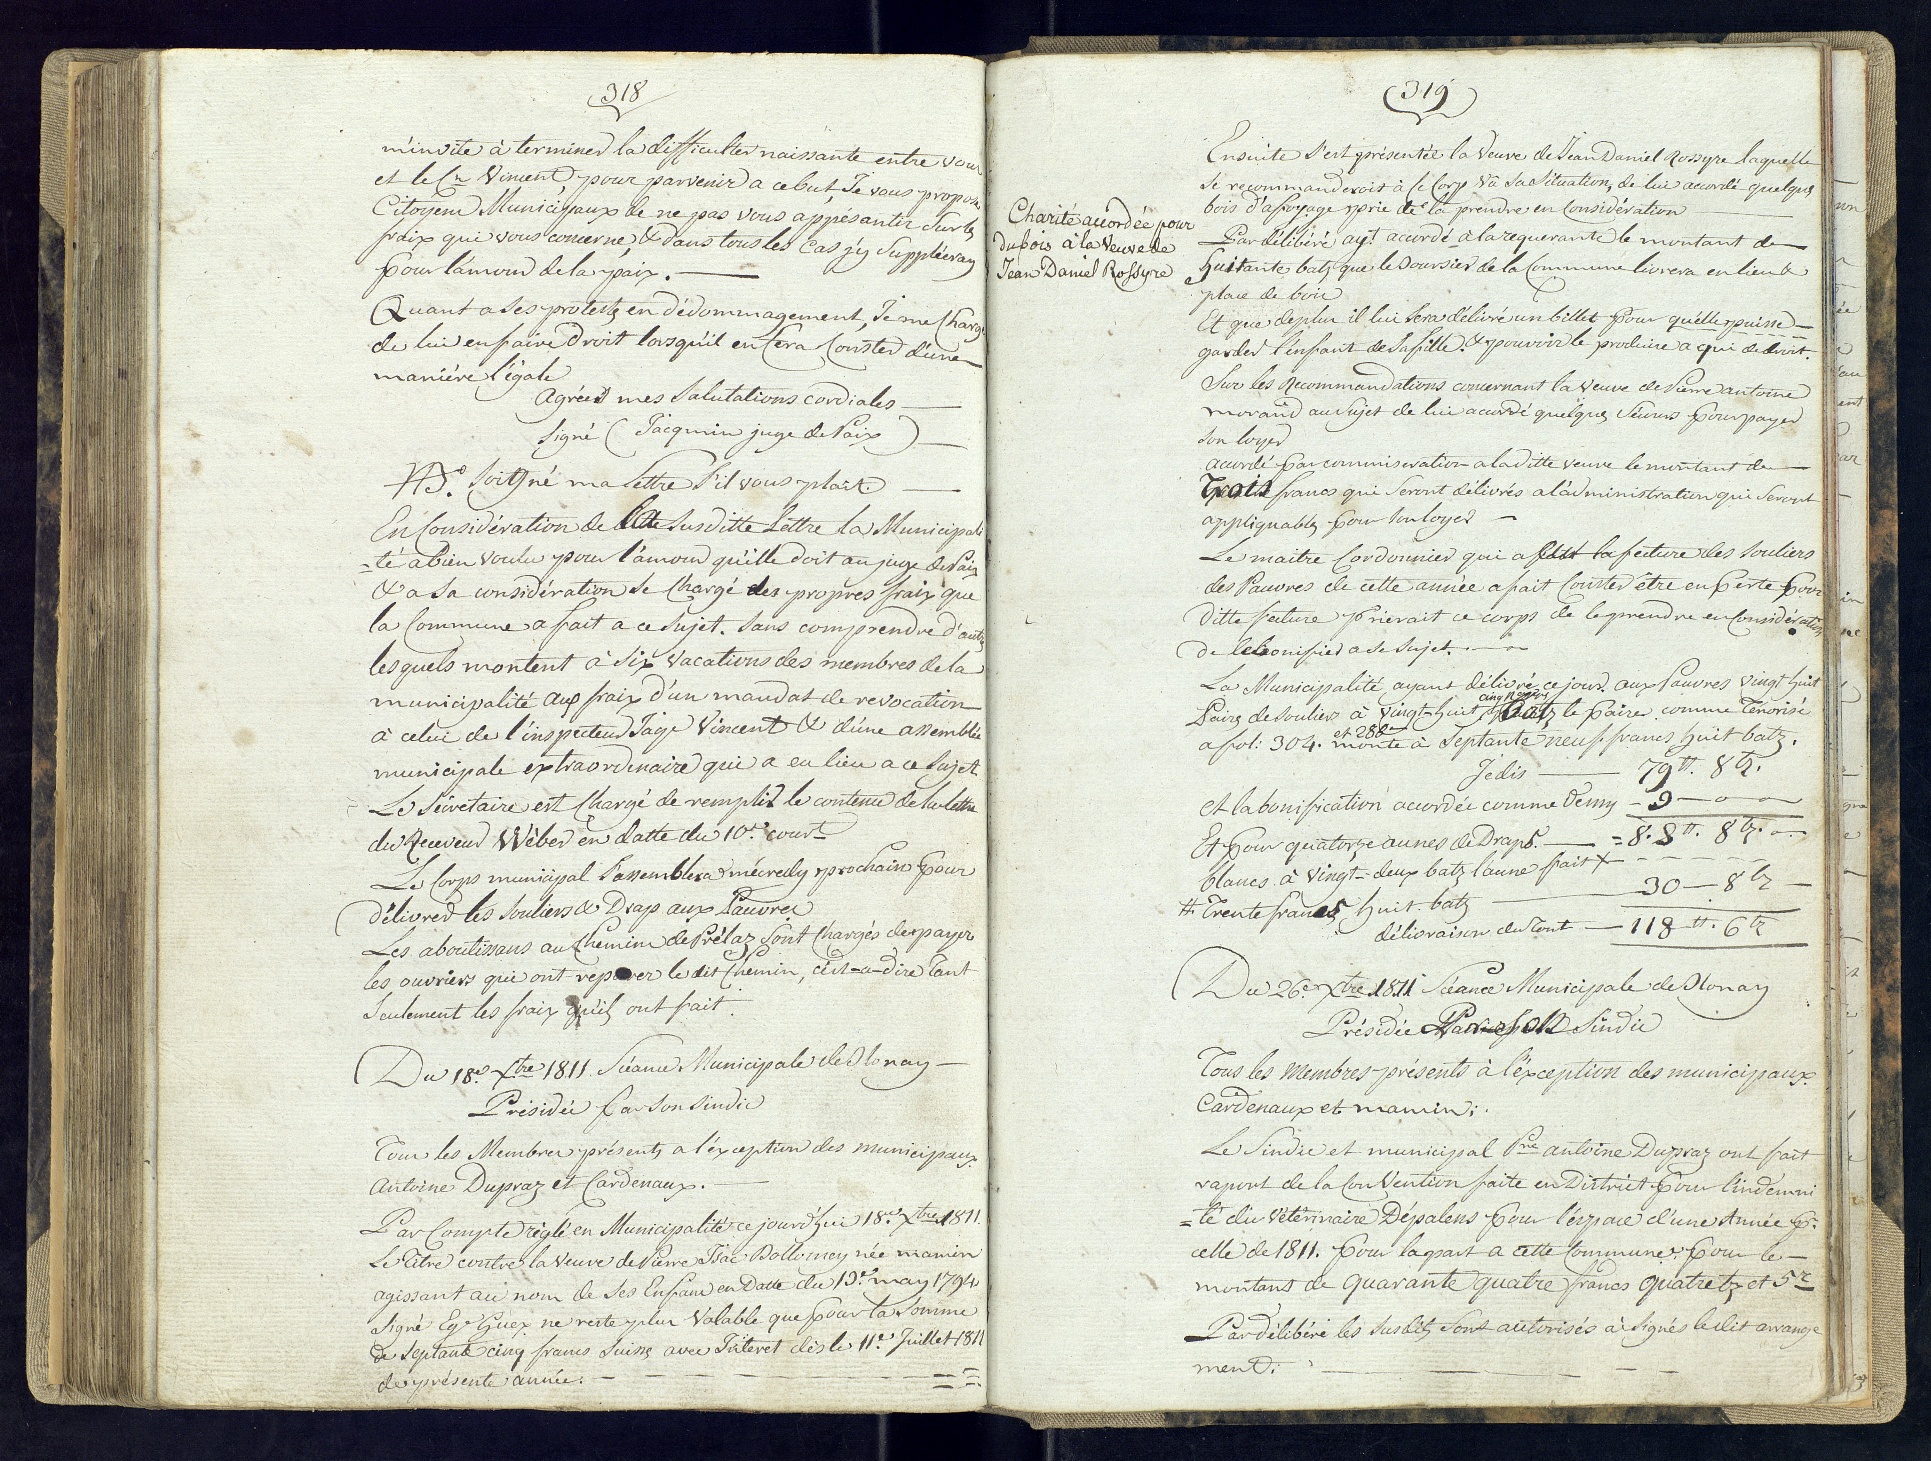 318
m'invite à terminer la difficulter naissante entre vous
et le Cn Vincent, pour parvenir a ce but, Je vous propose
Citoyens Municipaux de ne pas vous appésantir Sur les
fraix qui vous concerne, & dans tous les Cas j'y Suppléeray
pour l'amour de la paix.
Quant a Ses protests en dédommagement, Je me Charge
de lui en faire Droit lorsqu'il en Sera Conster d'une
maniére l'égale
Agréer mes Salutations cordiales
Signé (Jacquin juge de Paix)
NB.o Soigné ma lettre S'il vous plait.
En Considération de la Susditte Lettre la Municipali
=té a bien voulu pour l'amour qu'elle doit au juge de Paix
& a Sa considération Se Chargé des propres fraix que
la Commune a fait a ce Sujet. Sans comprendre d'autres
lesquels montent à Six Vacations des membres de la
municipalité aux fraix d'un mandat de revocation
à celui de l'inspecteur Jage Vincent & d'une assemblée
municipale extraordinaire qui a eu lieu a ce Sujet
Le Sécretaire est Chargé de remplir le contenu de la lettre
du Receveur Wèber en Datte du 10.e court
Le Corps municipal S'assemblera mécredy prochain pour
Délivrer les Souliers & Drap aux Pauvres
Les aboutissans au Chemin de Prélaz Sont Chargés de payer
les ouvriers qui ont reparer le dit Chemin, c'est-a-dire Tant
Seulement les fraix qu'ils ont fait.
Du 18.e Xbre 1811 Séance Municipale de Blonay
Présidée par Son Sindic
Tous les Membres présents a l'éxception des municipaux
Antoine Dupraz et Cardenaux.
Par Compte règlé en Municipalité ce jourd'hui 18.e Xbre 1811
Le Titre contre la Veuve de Pierre Isac Dollomey née mamin
agissant au nom de Ses Enfans en Datte du 19.e may 1794
Signé Eg.e Guex ne reste plus Valable que pour la Somme
de Septante cinq francs Suisse avec Jnteret dès le 11.e Juillet 1811
de présente année.
319
Charité accordée pour
du bois à la Veuve de
Jean Daniel Rossyre
Ensuite S'est présentée la Veuve de Jean Daniel Rossyre laquelle
Se recommanderoit à Ce Corp vu Sa Situation, de lui acordé quelques
bois d'affoyage & prie de la prendre en Considération
Par délibéré ayt acordé à la requerante le montant de
huitante batz que le Boursier de la Commune livrera en lieu &
place de bois
Et que de plus il lui Sera délivré un billet pour qu'elle puisse
garder l'enfant de Sa fille. & pouvoir le produire a qui de droit.
Sur les Recommandations concernant la Veuve de Pierre antoine
morand au Sujet de lui acordé quelques Sécours pour payer
Son loyer
acordé par commiseration a la ditte veuve le montant de
Trois francs qui Seront délivrés a l'administration qui Seront
appliquables pour Son loyer
Le maitre Cordonnier qui a fait la fecture des Souliers
des Pauvres de cette année a fait Conster être en perte pour
ditte fecture prierait ce corps de le prendre en Considération
de le bonifier a Se Sujet.
La Municipalité ayant délivré ce jour aux Pauvres vingt huit
cinq Rappes
Paires de Souliers à Vingt-huit batz le paire comme Ténorisé
et 288
a fol: 304. monte à Septante neuf francs huit batz.
Jedis 79 tt. 8 tz.
et la bonification accordée comme Venny - 9 - o - o
Et pour quatorze aunes de Draps. = 8.8 tt. 8 tz. o
blancs à Vingt-deux batz l'aune fait X
tt Trente francs huit batz 30 - 8 tz
délivraison du Tout - 118 tt. 6 tz
Du 26.e Xbre 1811 Séance Municipale de Blonay
Présidée Par Son Sindic
Tous les Membres présents à l'éxception des municipaux
Cardenaux et mamin.
Le Sindic et municipal Pre antoine Dupraz ont fait
raport de la ConVention faite en District pour l'indemni
=té du Vétérinaire Dépalens pour l'espace d'une Année pr.
celle de 1811. pour la part a cette Commune. pour le
montant de quarante quatre francs quatre tz et 5 r
Par délibéré les Susdits Sont autorisés à Signés le dit arrange
ment.